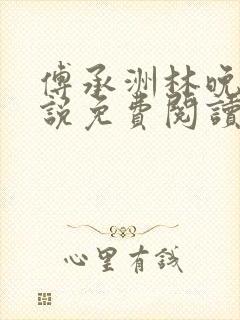 傅承洲林晚
說免費閱讀
心里有錢